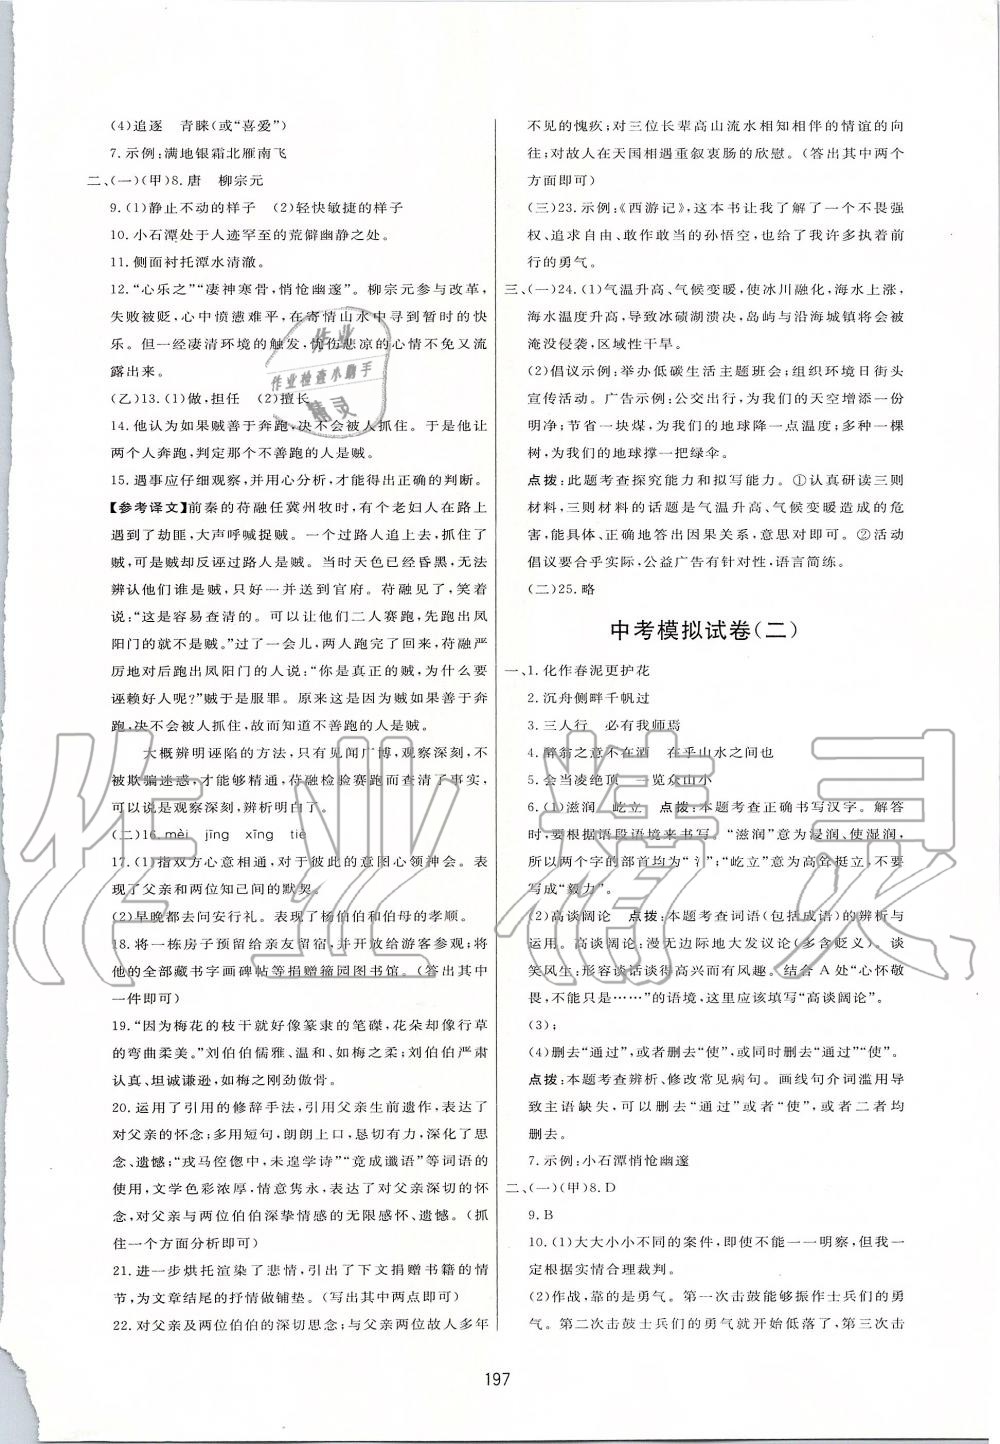 (4)追逐　青睐(或“喜爱”)
7.示例:满地银霜北雁南飞
二、(一)(甲)8.唐　柳宗元
9.(1)静止不动的样子　(2)轻快敏捷的样子
10.小石潭处于人迹罕至的荒僻幽静之处。
11.侧面衬托潭水清澈。
12.“心乐之”“凄神寒骨,悄怆幽邃”。柳宗元参与改革,
失败被贬,心中愤懑难平,在寄情山水中寻到暂时的快
乐。但一经凄清环境的触发,忧伤悲凉的心情不免又流
露出来。
(乙)13.(1)做,担任　(2)擅长
14.他认为如果贼善于奔跑,决不会被人抓住。于是他让
两个人奔跑,判定那个不善跑的人是贼。
15.遇事应仔细观察,并用心分析,才能得出正确的判断。
【参考译文】前秦的苻融任冀州牧时,有个老妇人在路上
遇到了劫匪,大声呼喊捉贼。一个过路人追上去,抓住了
贼,可是贼却反诬过路人是贼。当时天色已经昏黑,无法
辨认他们谁是贼,只得一起送到官府。苻融见了,笑着
说:“这是容易查清的。可以让他们二人赛跑,先跑出凤
阳门的就不是贼。”过了一会儿,两人跑完回来,苻融严
厉地对后跑出凤阳门的人说:“你是真正的贼,为什么要
诬赖好人呢?”贼于是服罪。原来这是因为贼如果善于奔
跑,决不会被人抓住,故而知道不善跑的人是贼。
大概辨明诬陷的方法,只有见闻广博,观察深刻,不
被欺骗迷惑,才能够精通,苻融检验赛跑而查清了事实,
可以说是观察深刻,辨析明白了。
(二)16.mèi　jīng　xīng　tiè
17.(1)指双方心意相通,对于彼此的意图心领神会。表
现了父亲和两位知己间的默契。
(2)早晚都去问安行礼。表现了杨伯伯和伯母的孝顺。
18.将一栋房子预留给亲友留宿,并开放给游客参观;将
他的全部藏书字画碑帖等捐赠籀园图书馆。(答出其中
一件即可)
19.“因为梅花的枝干就好像篆隶的笔磔,花朵却像行草
的弯曲柔美。”刘伯伯儒雅、温和、如梅之秀。刘伯伯严肃
认真、坦诚谦逊,如梅之刚劲傲骨。
20.运用了引用的修辞手法,引用父亲生前遗作,表达了
对父亲的怀念;多用短句,朗朗上口,恳切有力,深化了思
念、遗憾;“戎马倥偬中,未遑学诗”“竟成谶语”等词语的
使用,文学色彩浓厚,情意隽永,表达对父亲深切的怀
念,对父亲与两位伯伯深挚情感的无限感怀、遗憾。(抓
住一个方面分析即可)
21.进一步烘托渲染了悲情,引出了下文捐赠书籍的情
节,为文章结尾的抒情做铺垫。(写出其中两点即可)
22.对父亲及两位伯伯的深切思念;与父亲两位故人多年
不见的愧疚;对三位长辈高山流水相知相伴的情谊的向
往;对故人在天国相遇重叙衷肠的欣慰。(答出其中两个
方面即可)
(三)23.示例:《西游记》,这本书让我了解了一个不畏强
权、追求自由、敢作敢当的孙悟空,给了我许多执着前
行的勇气。
三、(一)24.(1)气温升高、气候变暖,使冰川融化,海水上涨,
海水温度升高,导致冰碛湖溃决,岛屿与沿海城镇将会被
淹没侵袭,区域性干旱。
(2)倡议示例:举办低碳生活主题班会;组织环境日街头
宣传活动。广告示例:公交出行,为我们的天空增添一份
明净;节省一块煤,为我们的地球降一点温度;多种一棵
树,为我们的地球撑一把绿伞。
点拨:此题考查探究能力和拟写能力。①认真研读三则
材料,三则材料的话题是气温升高、气候变暖造成的危
害,能具体、正确地答出因果关系,意思对即可。②活动
倡议要合乎实际,公益广告有针对性,语言简练。
(二)25.略
中考模拟试卷(二)
一、1.化作春泥更护花
2.沉舟侧畔千帆过
3.三人行　必有我师焉
4.醉翁之意不在酒　在乎山水之间也
5.会当凌绝顶　一览众山小
6.(1)滋润　屹立　点拨:本题考查正确书写汉字。解答
时,要根据语段语境来书写。“滋润”意为浸润、使湿润,
所以两个字的部首均为“氵”;“屹立”意为高耸挺立,不要
写成“毅力”。
(2)高谈阔论　点拨:本题考查词语(包括成语)的辨析与
运用。高谈阔论:漫无边际地大发议论(多含贬义)。谈
笑风生:形容谈话谈得高兴而有风趣。结合 A 处“心怀敬
畏,不能只是……”的语境,这里应该填写“高谈阔论”。
(3);
(4)删去“通过”,或者删去“使”,或同时删去“通过”“使”。
点拨:本题考查辨析、修改常见病句。画线句介词滥用导
致主语缺失,可以删去“通过”或者“使”,或者二者均
删去。
7.示例:小石潭悄怆幽邃
二、(一)(甲)8.D
9.B
10.(1)大大小小不同的案件,即使不能一一明察,但我一
定根据实情合理裁判。
(2)作战,靠的是勇气。第一次击鼓能够振作士兵们的勇
气。第二次击鼓士兵们的勇气就开始低落了,第三次击
197
作业
作业检查小助手
精灵
作业精灵